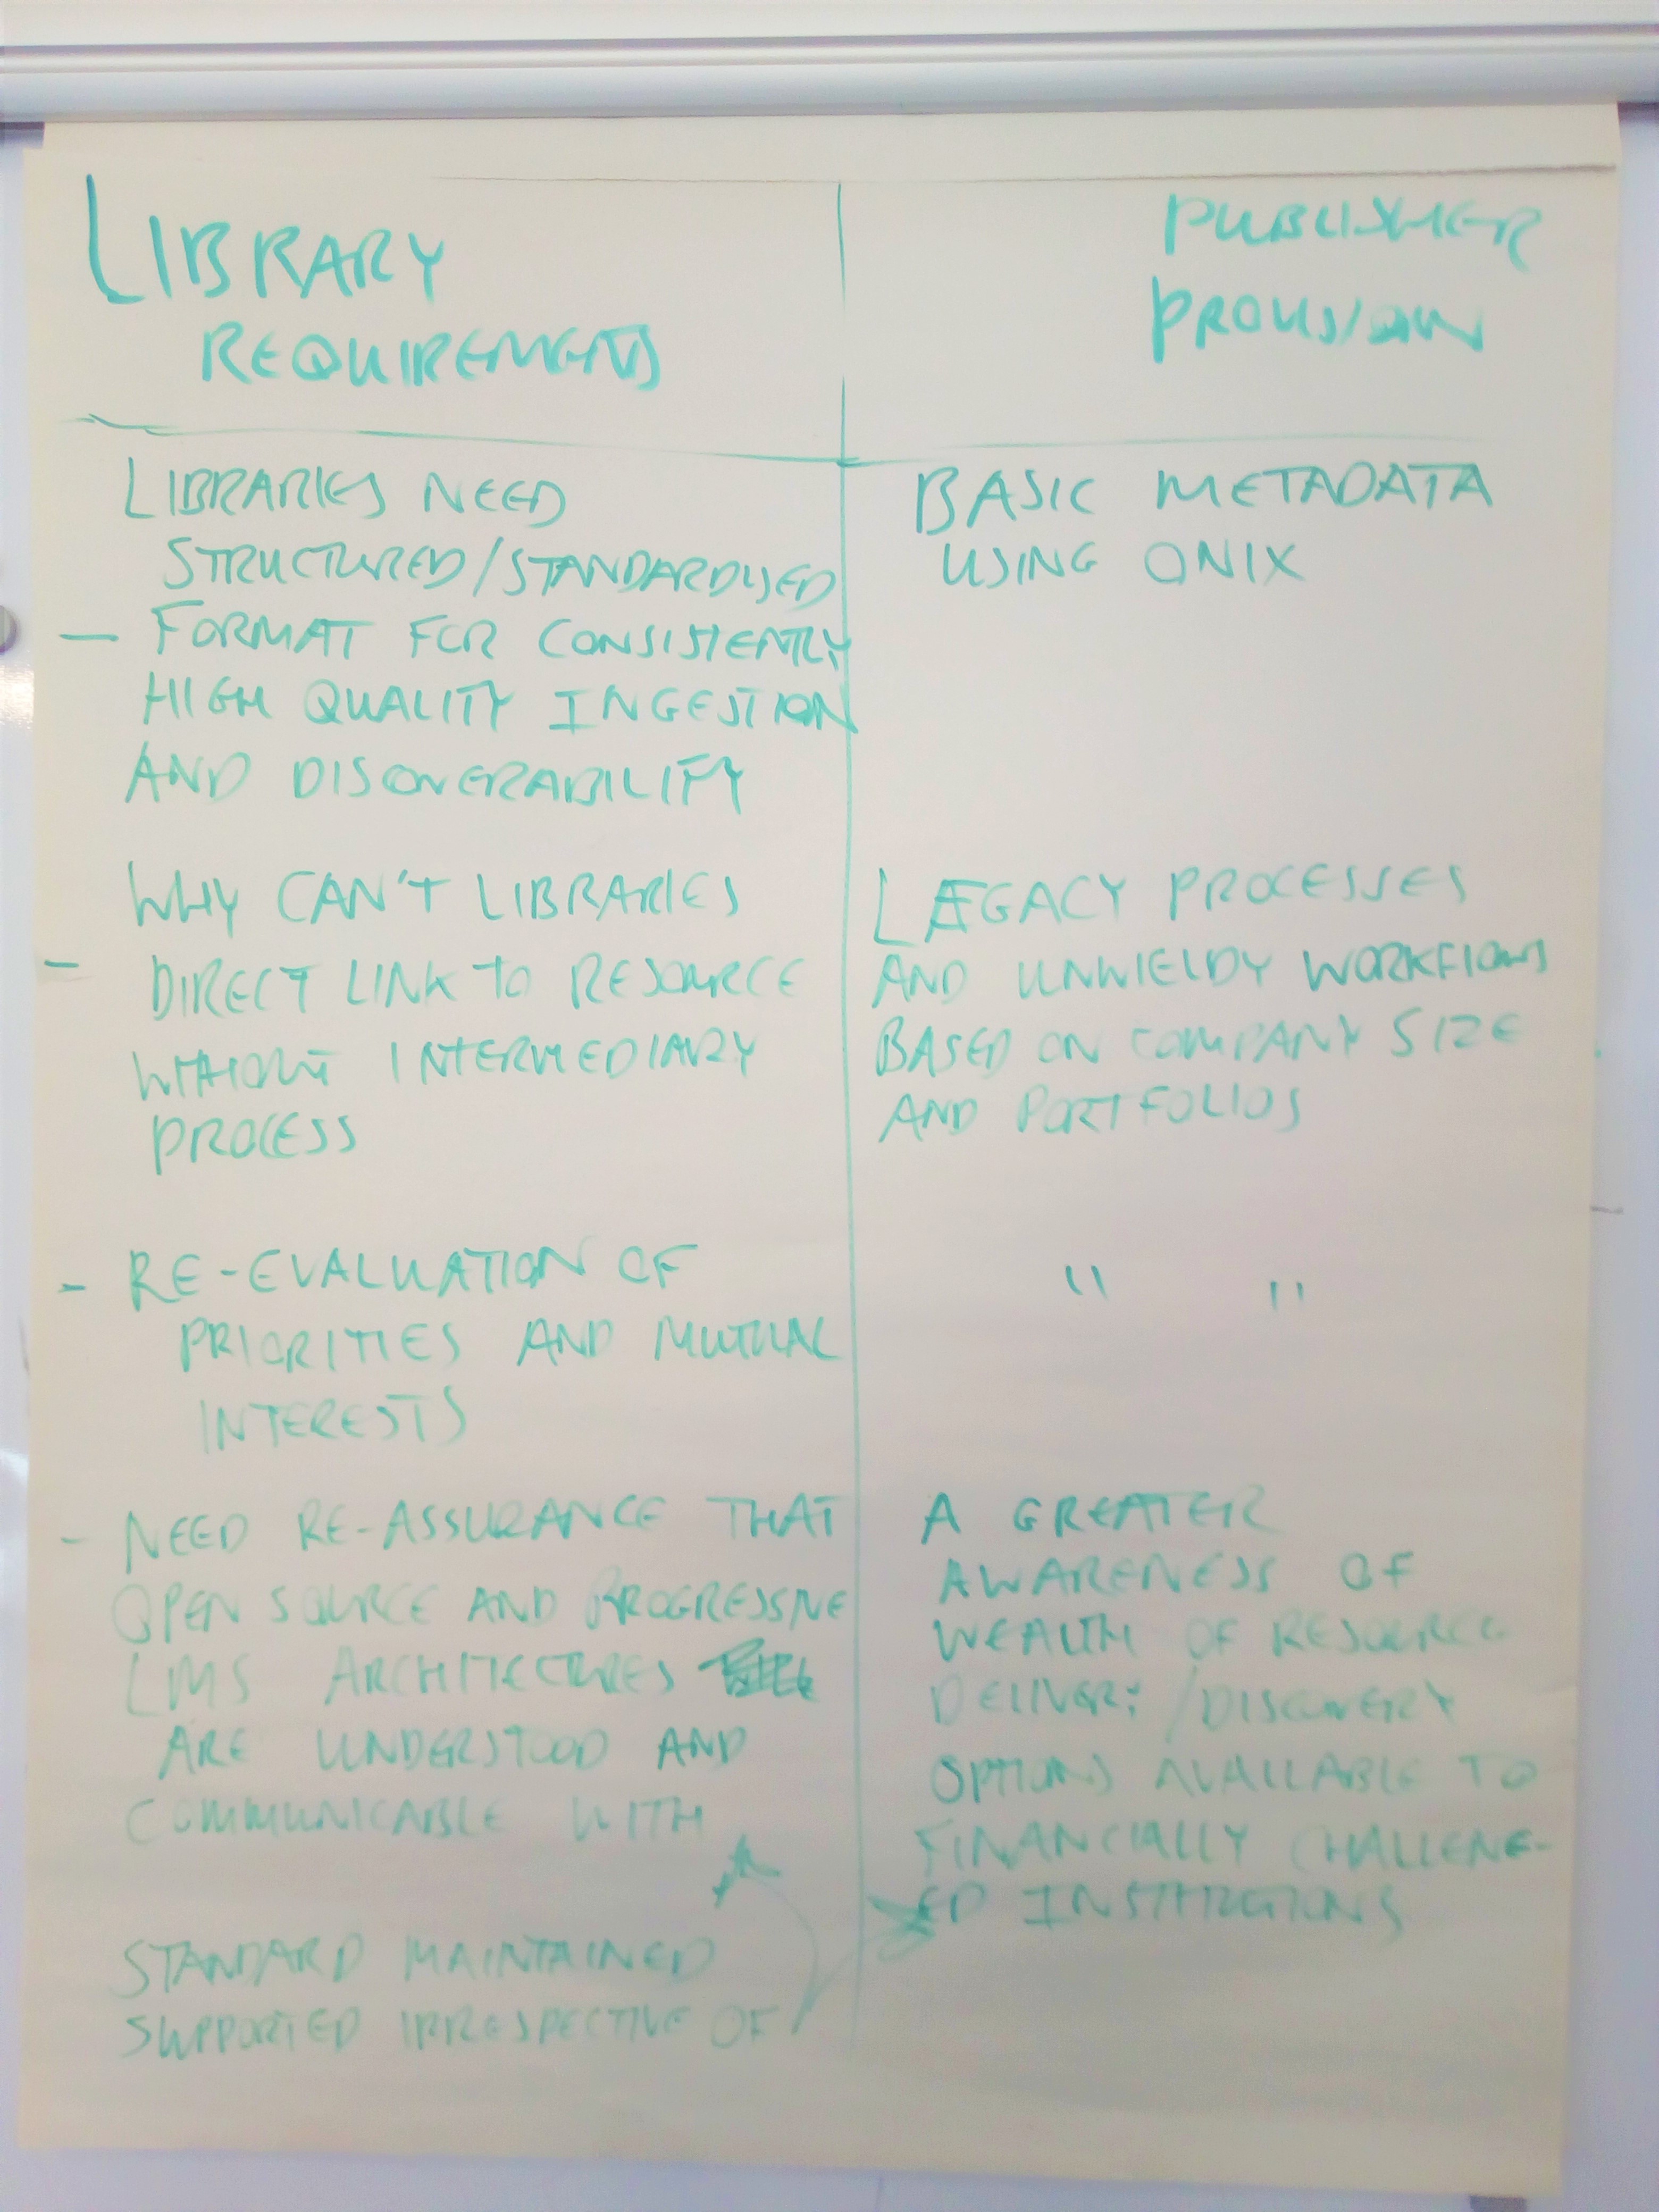 LIBRARY
REQUIREMENTS
PUBLISHER
PROVISION
LIBRARIES NEED
STRUCTURED/STANDARDISED
— FORMAT FOR CONSISTENTLY
HIGH QUALITY INGESTION
AND DISCOVERABILITY
BASIC METADATA
USING ONIX
WHY CAN'T LIBRARIES
- DIRECT LINK TO RESOURCE
WITHOUT INTERMEDIARY
PROCESS
LEGACY PROCESSES
AND UNWIELDY WORKFLOWS
BASED ON COMPANY SIZE
AND PORTFOLIOS
- RE-EVALUATION OF
PRIORITIES AND MUTUAL
INTERESTS
" "
- NEED RE-ASSURANCE THAT
OPEN SOURCE AND PROGRESSIVE
LMS ARCHITECTURES
ARE UNDERSTOOD AND
COMMUNICABLE WITH
STANDARD MAINTAINED
SUPPORTED IRRESPECTIVE OF
A GREATER
AWARENESS OF
WEALTH OF RESOURCE
DELIVERY/DISCOVERY
OPTIONS AVAILABLE TO
FINANCIALLY CHALLENG-
ED INSTITUTIONS